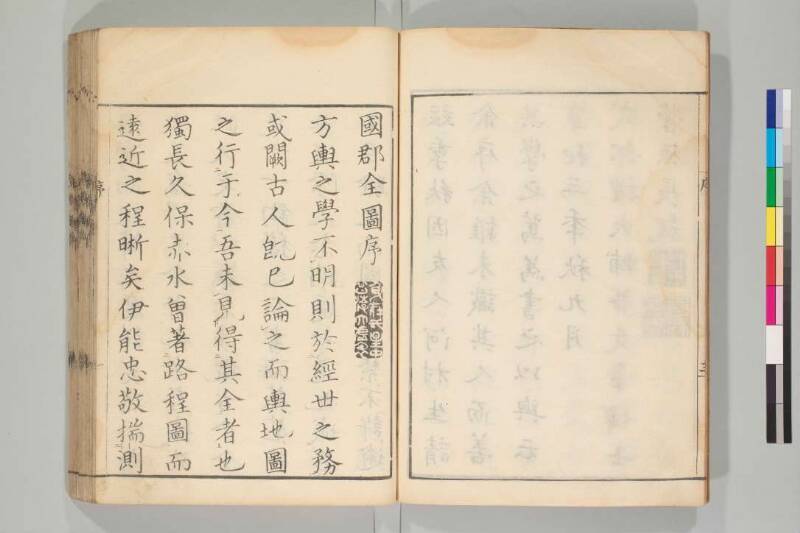 國郡全圖序
方輿之學不明則於經世之務
或闕古人既已論之而輿地圖
之行于今吾未見得其全者也
獨長久保赤水曽著路程圖而
遠近之程晰矣伊能忠敬揣測
序